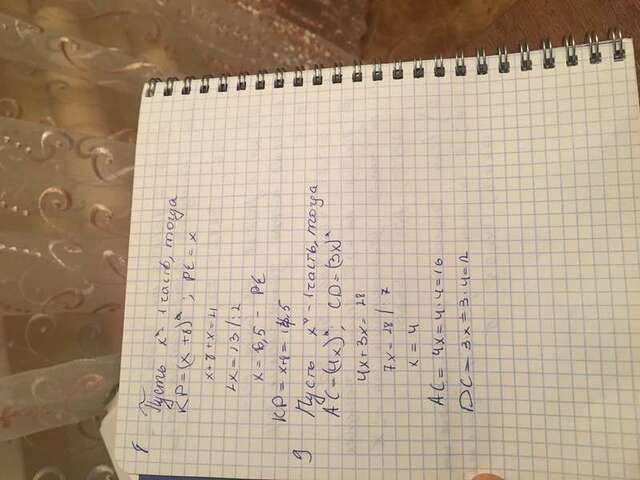 8
Пусть xᵃ - 1 часть, тогда
KP = (x + 8)ᵃ ; PE = x
x + 8 + x = 21
2x = 13 / : 2
x = 6,5 - PE
KP = x + 8 = 14,5
9 Пусть xᵃ - 1 часть, тогда
AC = (4x)ᵃ ; CD = (3x)ᵃ
4x + 3x = 28
7x = 28 / : 7
x = 4
AC = 4x = 4 · 4 = 16
DC = 3x = 3 · 4 = 12